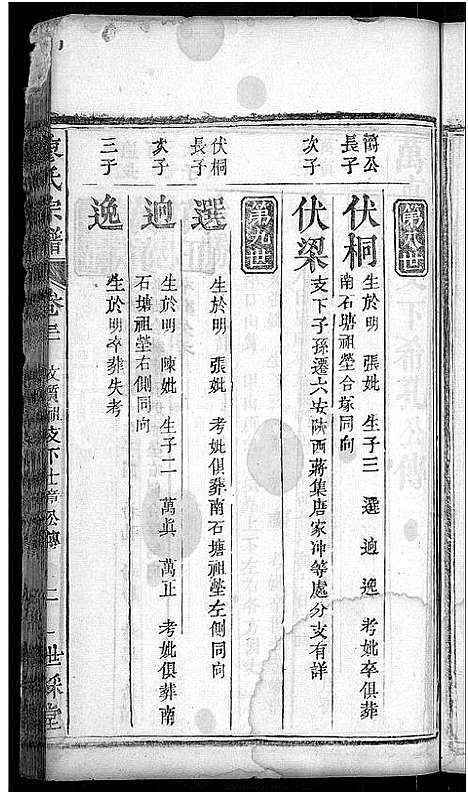 第八世
濟公
長子
伏桐
生於明 張妣 生子三 選 逈 逸 考妣卒俱葬
南石塘祖塋合塚同向
次子
伏梁
支下子孫遷六安陝西蔣集唐家冲等處分支有詳
第九世
伏桐
長子
選
生於明 張妣 考妣俱葬南石塘祖塋左側同向
次子
逈
生於明 陳妣 生子二 萬眞 萬正 考妣俱葬南
石塘祖塋右側同向
三子
逸
生於明卒葬失考
氏宗譜
卷三
支下士章公傳
世綵堂